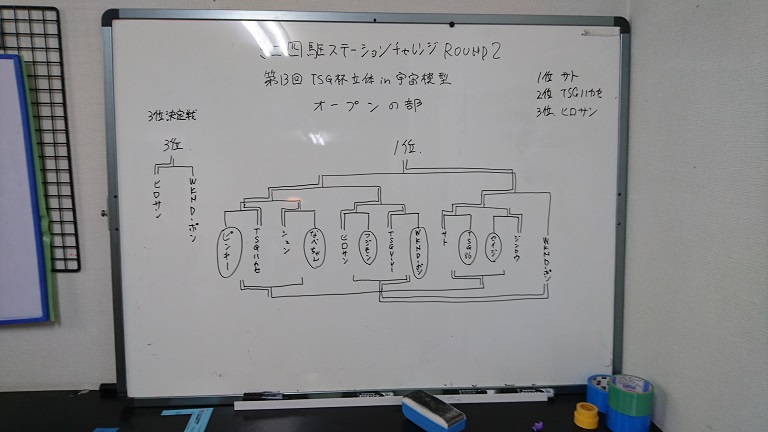 ミニ四駆ステーションチャレンジ ROUND2
第13回 TSG杯立体 in 宇宙模型
オープンの部
1位 サト
2位 TSGハカセ
3位 ヒロサン
3位決定戦
3位
ヒロサン
WKND-ポン
1位
ピンキー
TSGハカセ
シュン
なべちゃん
ヒロサン
フジモン
WKND-ポン
サト
ジンロウ
WKND-ポン